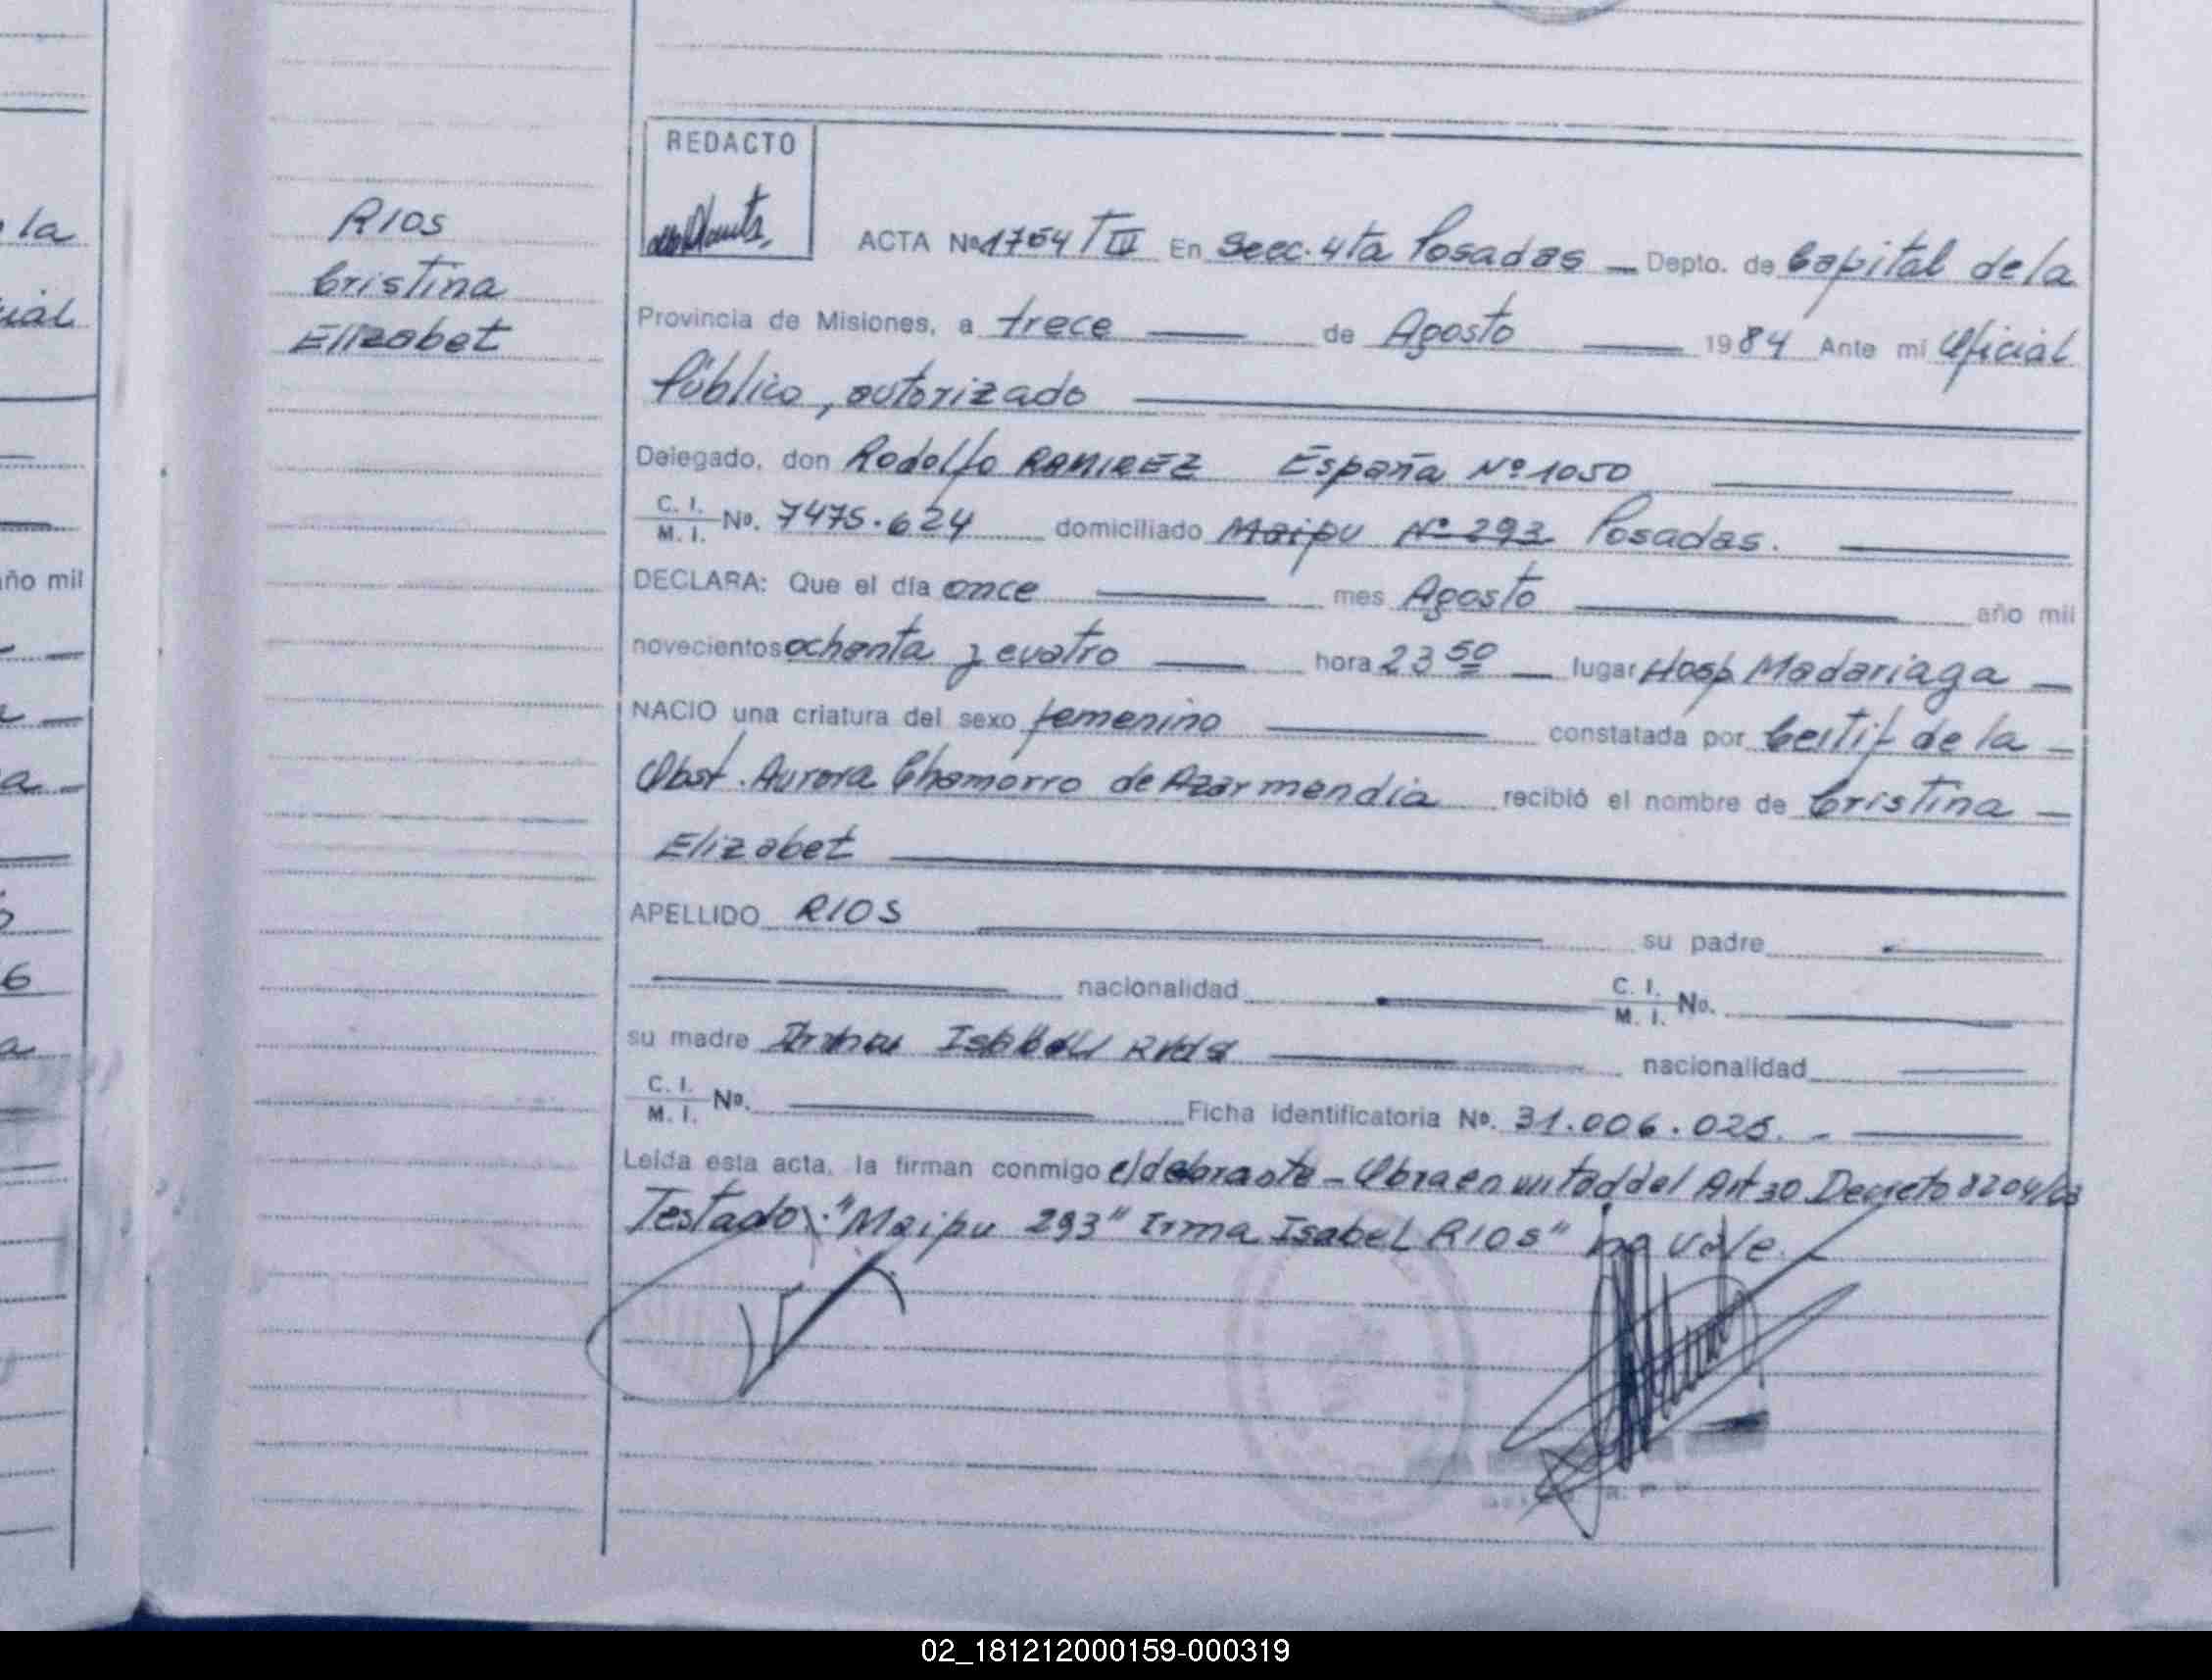 la
RIOS
Cristina
Elizabet
ial
año mil
6
a
REDACTO
ACTA Nº 1764 T III En Secc. 4ta Posadas — Depto. de Capital de la
Provincia de Misiones, a trece — de Agosto — 1984 Ante mi Oficial
Público, autorizado
Delegado, don Rodolfo RAMIREZ España Nº 1050
C. I. M. I. Nº. 7475.624 domiciliado Maipu Nº 293 Posadas.
DECLARA: Que el día once — mes Agosto — año mil
novecientos ochenta y cuatro — hora 23 50 — lugar Hosp Madariaga —
NACIO una criatura del sexo femenino — constatada por Certif de la —
Obst. Aurora Chamorro de Azarmendia recibió el nombre de Cristina —
Elizabet
APELLIDO RIOS — su padre —
nacionalidad — C. I. M. I. Nº. —
su madre Irma Isabel Rios — nacionalidad —
C. I. M. I. Nº. — Ficha identificatoria Nº. 31.006.025. -
Leída esta acta, la firman conmigo el - Obra en del Art 30 Decreto 8204/63
Testado: "Maipu 293" Irma Isabel RIOS" no vale. -
02_181212000159-000319